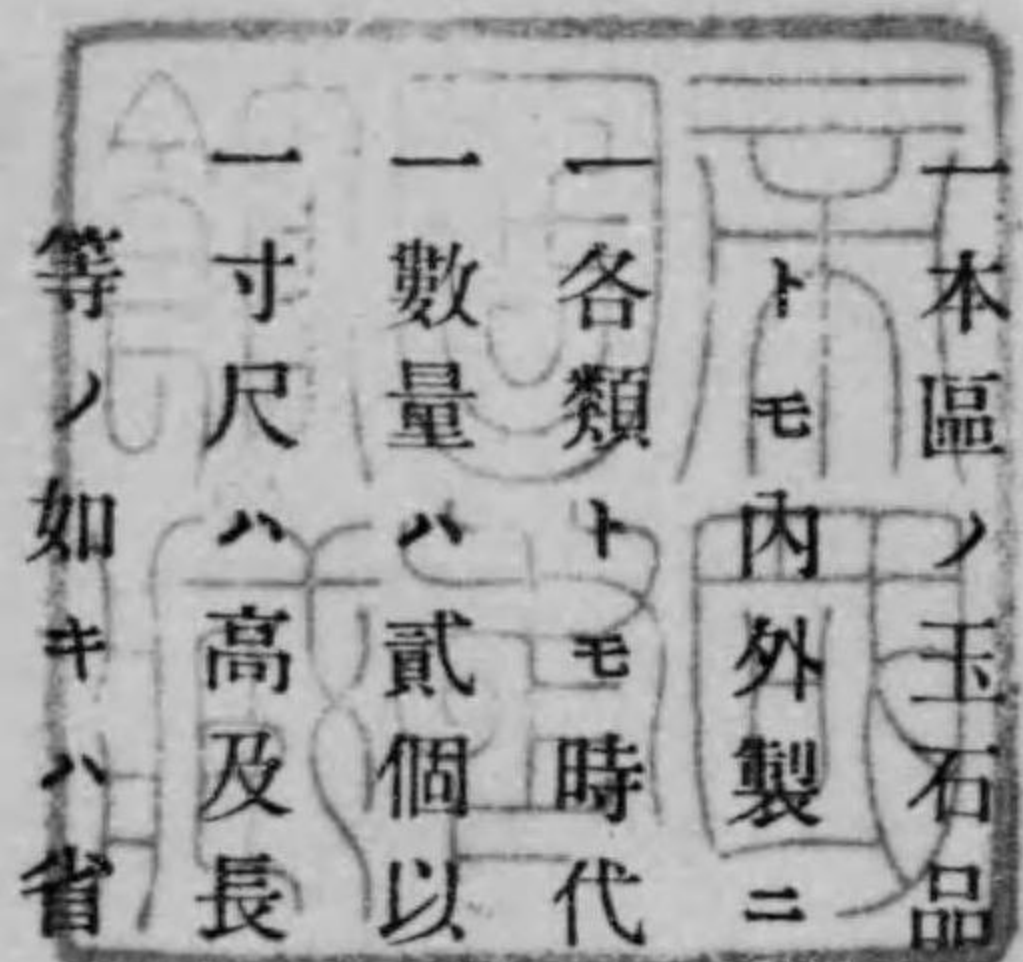 一本區ノ玉石品
トモ内外製ニ
一各類トモ時代
一數量ハ貳個以
一寸尺ハ高及長
等ノ如キハ省